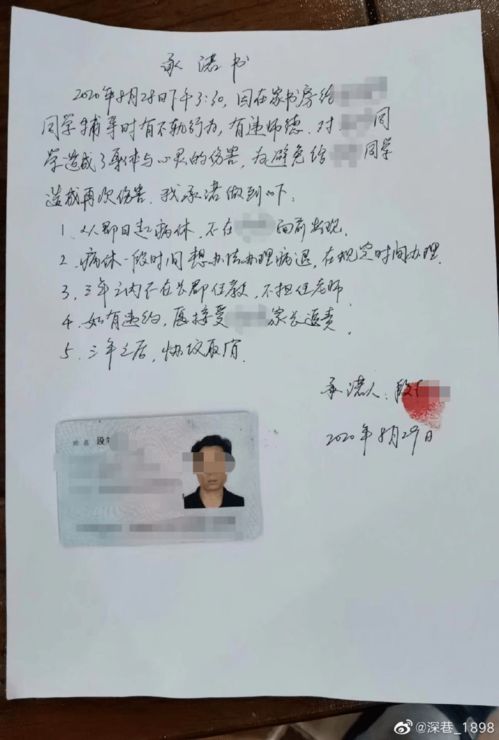 承诺书
2020年8月28日下午3:30,因在家书房给
同学辅导时有不轨行为,有违师德.对 同
学造成了身体与心灵的伤害,为避免给 同学
造成再次伤害.我承诺做到如下:
1、从即日起病休,不在 面前出现.
2、病休一段时间想办法办理病退,在规定时间办理.
3、三年之内不在长郡任教,不担任老师
4、如有违约,愿接受 家长追责.
5、三年之后,协议取消.
承诺人:段
2020年8月29日
姓名 段
@深巷_1898